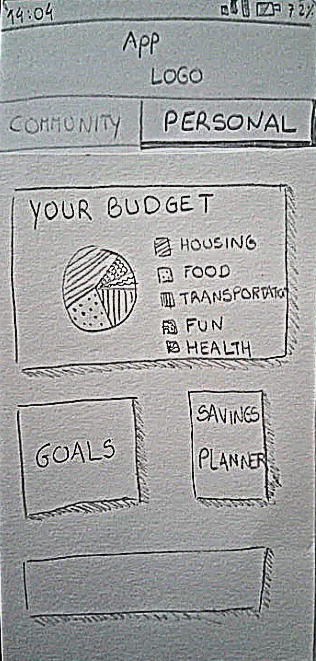 14:04 72%
App
LOGO
COMMUNITY PERSONAL
YOUR BUDGET
HOUSING
FOOD
TRANSPORTATION
FUN
HEALTH
GOALS
SAVINGS
PLANNER